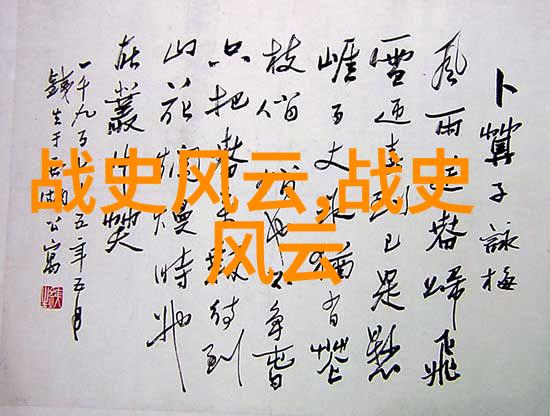 战史风云,战史
风云
卜算子詠梅
風雨送春歸飛
雪迎春到已是懸
崖百丈冰猶有花
枝俏俏也不爭春
只把春來報待到
山花爛漫時她
在叢中笑
一千九百五年五月
于公寓